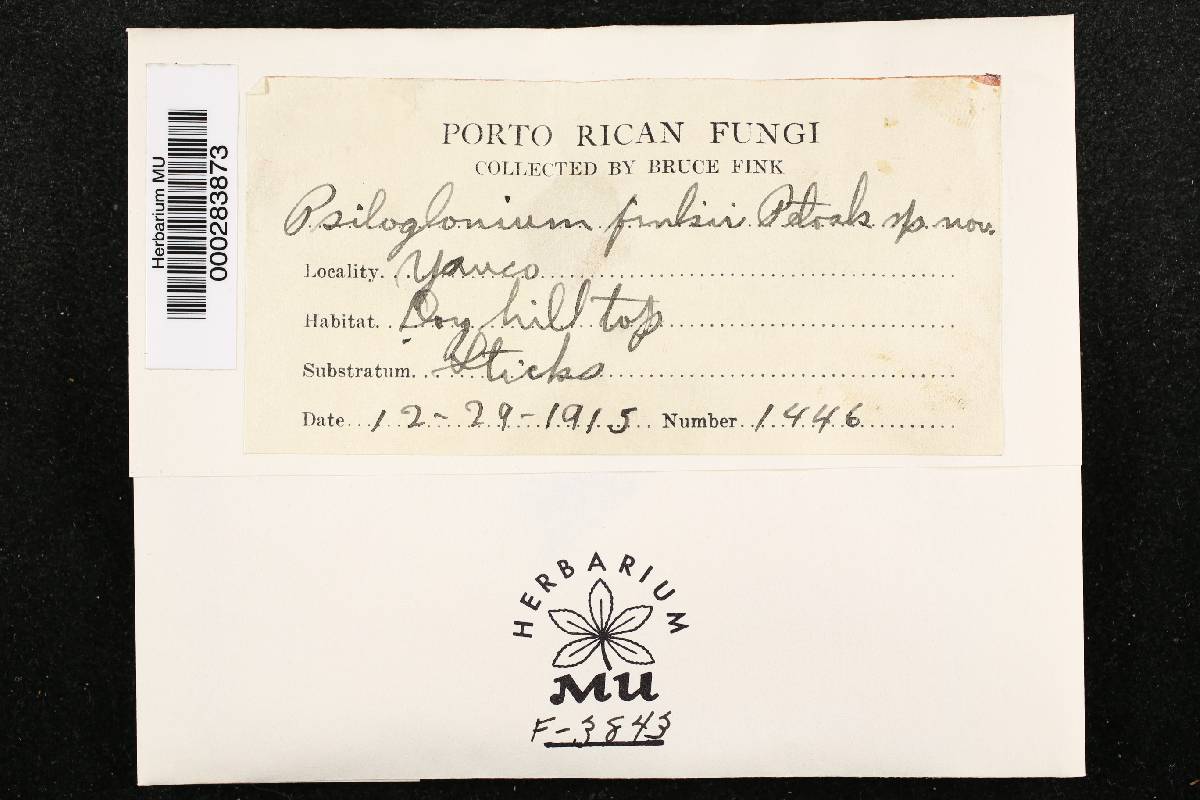 Herbarium MU
000283873
PORTO RICAN FUNGI
COLLECTED BY BRUCE FINK
Psiloglonium finkii Petrak sp. nov.
Locality Yauco
Habitat Dry hill top
Substratum Sticks
Date 12-29-1915 Number 1446
HERBARIUM
MU
F-3843